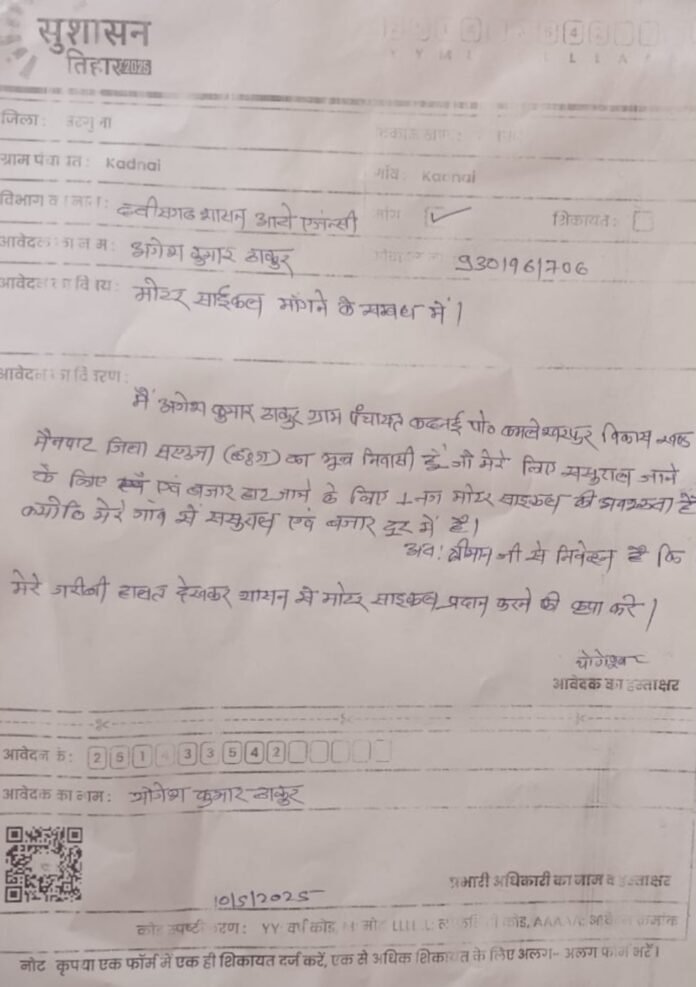 सुशासन
तिहार 2025
जिला: सरगुजा
ग्राम पंचायत: Kadnai
गाँव: Kadnai
विभाग का नाम: छत्तीसगढ़ शासन आर्या एजेन्सी
मांग ✓
शिकायत:
आवेदक का नाम: योगेश कुमार ठाकुर
9301961706
आवेदन का विषय: मोटर साईकल मांगने के सम्बध में।
आवेदन का विवरण:
मैं योगेश कुमार ठाकुर ग्राम पंचायत कदनई पो० कमलेश्वरपुर विकास खण्ड
मैनपाट जिला सरगुजा (छ०ग०) का मूल निवासी हूँ जो मेरे लिए ससुराल जाने
के लिए एवं बजार हाट जाने के लिए 1 नग मोटर साइकल की अवश्कता है
क्योकि मेरे गांव से ससुराल एवं बजार दूर में है।
अतः श्रीमान जी से निवेदन है कि
मेरे गरीबी हालत देखकर शासन से मोटर साइकल प्रदान करने की कृपा करें।
योगेश्वर
आवेदक का हस्ताक्षर
आवेदन क्रं: 2 5 1 4 3 3 5 4 2
आवेदक का नाम: योगेश कुमार ठाकुर
प्रभारी अधिकारी का नाम व हस्ताक्षर
10/5/2025
कोड स्पष्टीकरण: YY: वर्ष कोड,
नोट कृपया एक फॉर्म में एक ही शिकायत दर्ज करें, एक से अधिक शिकायत के लिए अलग- अलग फॉर्म भरें।